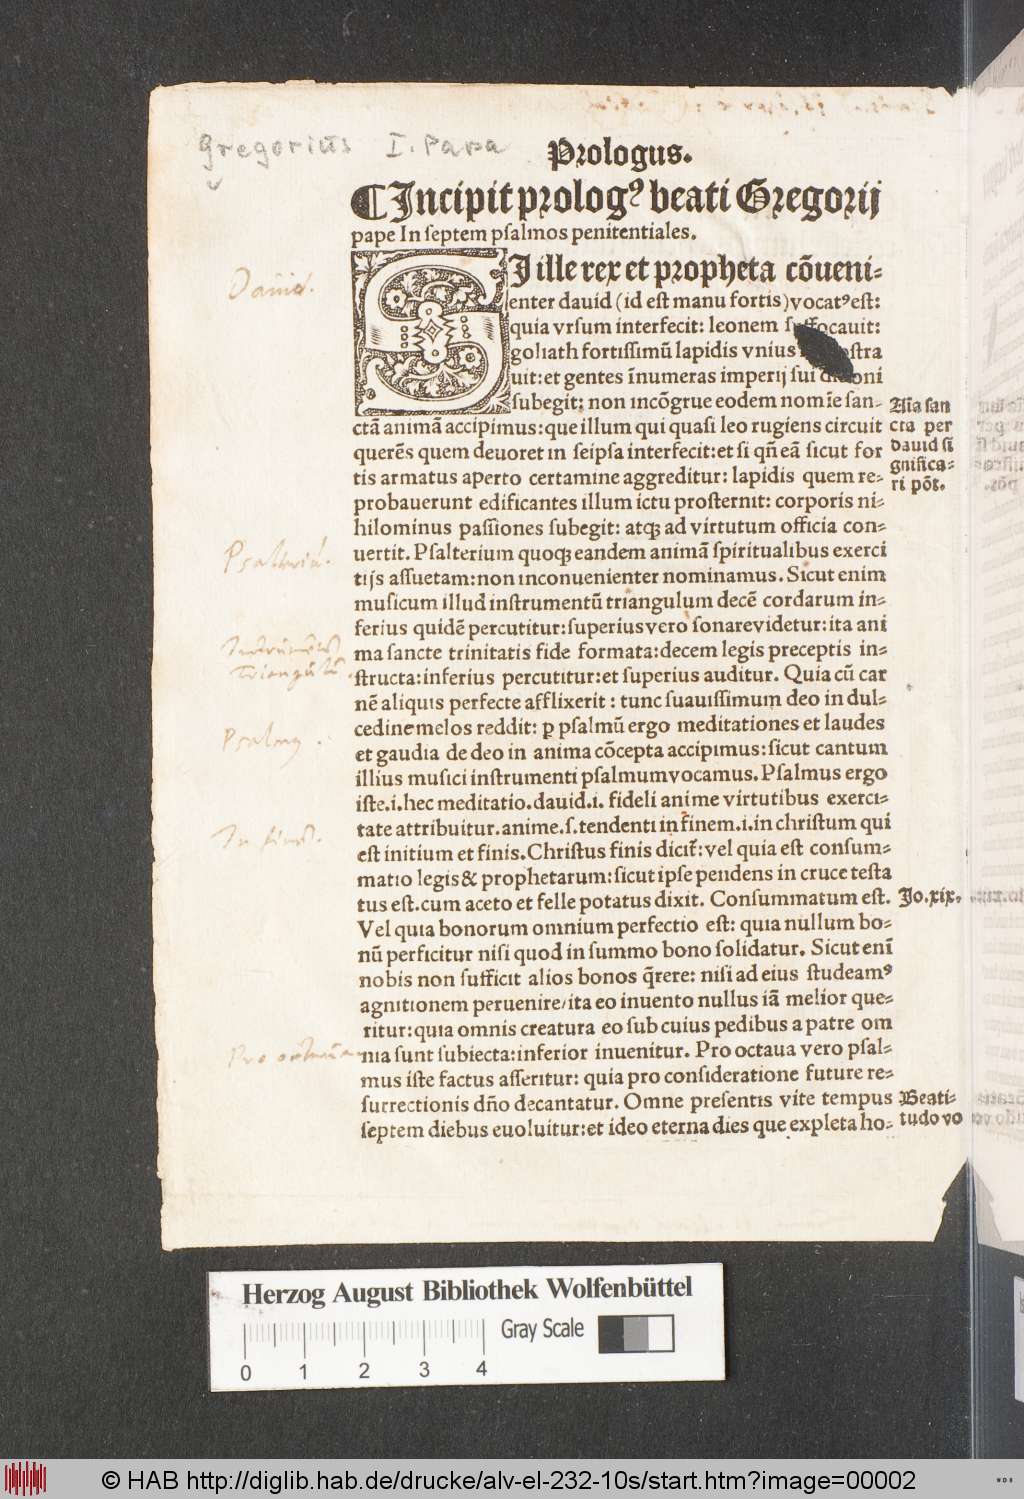 Gregorius I. Papa
Prologus.
¶Incipit prologꝰ beati Gregorij
pape In ſeptem pſalmos penitentiales.
SI ille rex et propheta cōueni⸗
enter dauid (id eſt manu fortis) vocatꝰ eſt:
quia vrſum interfecit: leonem ſuffocauit:
goliath fortiſſimū lapidis vnius
uit: et gentes īnumeras imperij ſui
ſubegit: non incōgrue eodem nomīe ſan⸗
ctā animā accipimus: que illum qui quaſi leo rugiens circuit
querēs quem deuoret in ſeipſa interfecit: et ſi qn̄ eā ſicut for
tis armatus aperto certamine aggreditur: lapidis quem re⸗
probauerunt edificantes illum ictu proſternit: corporis ni⸗
hilominus paſſiones ſubegit: atqꝫ ad virtutum officia con⸗
uertit. Pſalterium quoqꝫ eandem animā ſpiritualibus exerci
tijs aſſuetam: non inconuenienter nominamus. Sicut enim
muſicum illud inſtrumentū triangulum decē cordarum in⸗
ferius quidē percutitur: ſuperius vero ſonare videtur: ita ani
ma ſancte trinitatis fide formata: decem legis preceptis in⸗
ſtructa: inferius percutitur: et ſuperius auditur. Quia cū car
nē aliquis perfecte afflixerit: tunc ſuauiſſimum deo in dul⸗
cedine melos reddit: p pſalmū ergo meditationes et laudes
et gaudia de deo in anima cōcepta accipimus: ſicut cantum
illius muſici inſtrumenti pſalmum vocamus. Pſalmus ergo
iſte .i. hec meditatio. dauid .i. fideli anime virtutibus exerci⸗
tate attribuitur. anime .ſ. tendenti in finem .i. in chriſtum qui
eſt initium et finis. Chriſtus finis dicit᷑: vel quia eſt conſum⸗
matio legis & prophetarum: ſicut ipſe pendens in cruce teſta
tus eſt. cum aceto et felle potatus dixit. Conſummatum eſt.
Vel quia bonorum omnium perfectio eſt: quia nullum bo⸗
nū perficitur niſi quod in ſummo bono ſolidatur. Sicut enī
nobis non ſufficit alios bonos q̄rere: niſi ad eius ſtudeamꝰ
agnitionem peruenire/ ita eo inuento nullus iā melior que⸗
ritur: quia omnis creatura eo ſub cuius pedibus a patre om
nia ſunt ſubiecta: inferior inuenitur. Pro octaua vero pſal⸗
mus iſte factus aſſeritur: quia pro conſideratione future re⸗
ſurrectionis dn̄o decantatur. Omne preſentis vite tempus
ſeptem diebus euoluitur: et ideo eterna dies que expleta ho⸗
Aīa ſan
cta per
dauid ſi
gnifica⸗
ri pōt.
Jo.xix.
Beati⸗
tudo vo
Dauid.
Psalteriū.
Instrumētū
Triangulū
Psalmꝰ.
In finē.
Pro octaua
Herzog August Bibliothek Wolfenbüttel
Gray Scale
0 1 2 3 4
© HAB http://diglib.hab.de/drucke/alv-el-232-10s/start.htm?image=00002